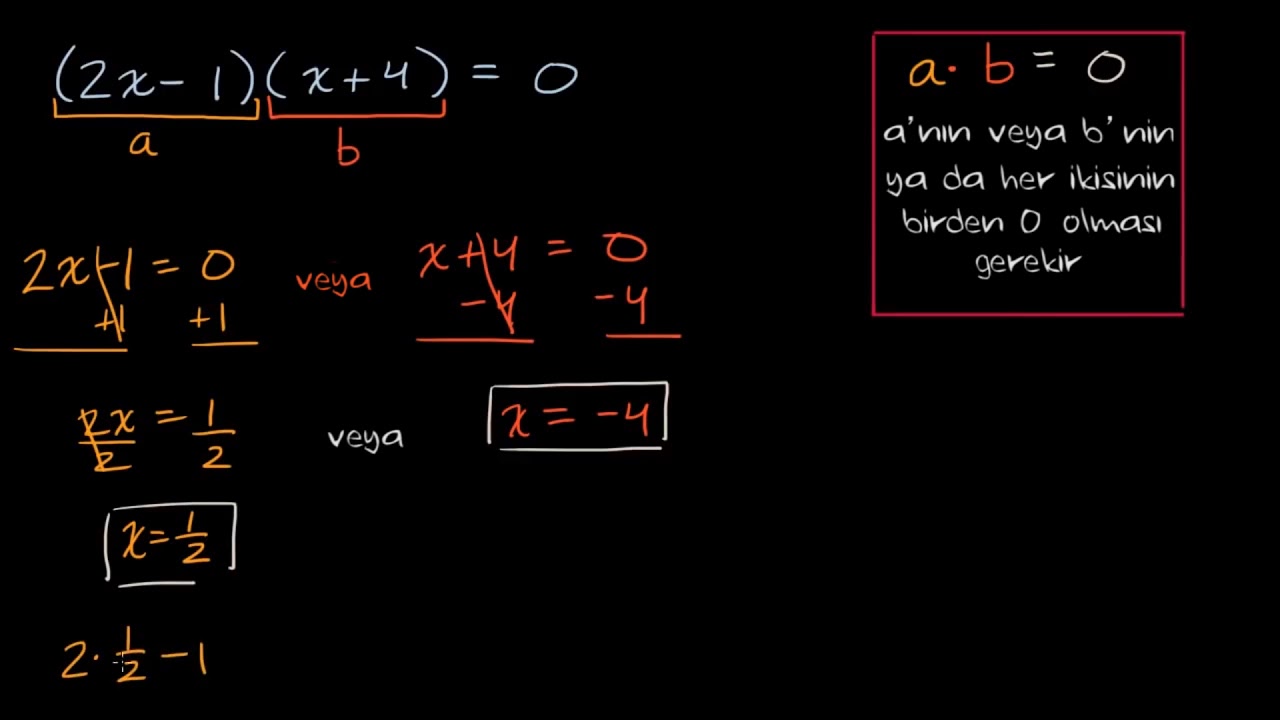 (2x - 1)(x + 4) = 0
a b
2x - 1 = 0 veya x + 4 = 0
+1 +1 -4 -4
2x/2 = 1/2 veya x = -4
x = 1/2
2 · 1/2 - 1
a · b = 0
a'nın veya b'nin
ya da her ikisinin
birden 0 olması
gerekir